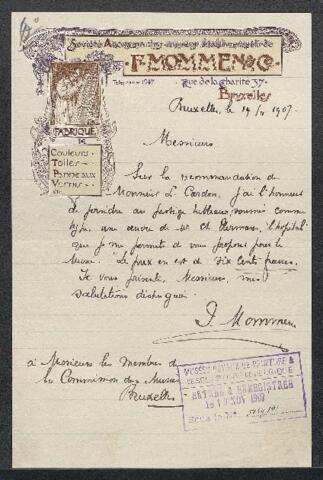 Société Anonyme des anciens établissements de
F. MOMMEN & Co
Rue de la Charité 37
Bruxelles
Bruxelles, le 19/4 1907
FABRIQUE
Couleurs
Toiles
Panneaux
Vernis
Messieurs
Sur la recommandation de
Monsieur L. Cardon, j'ai l'honneur
de joindre au
une œuvre de Mr Ch Hermans, l'hopital
que je me permet de vous proposer pour le
Musée. Le prix en est de six cents francs.
Je vous présente, Messieurs, mes
salutations distinguées
F. Mommen
à Messieurs les Membres de
la Commission des Musées
Bruxelles
MUSÉES ROYAUX DE PEINTURE &
DE SCULPTURE DE BELGIQUE
ENTRÉE & ENREGISTRÉE
NOV 1907
Sous le No